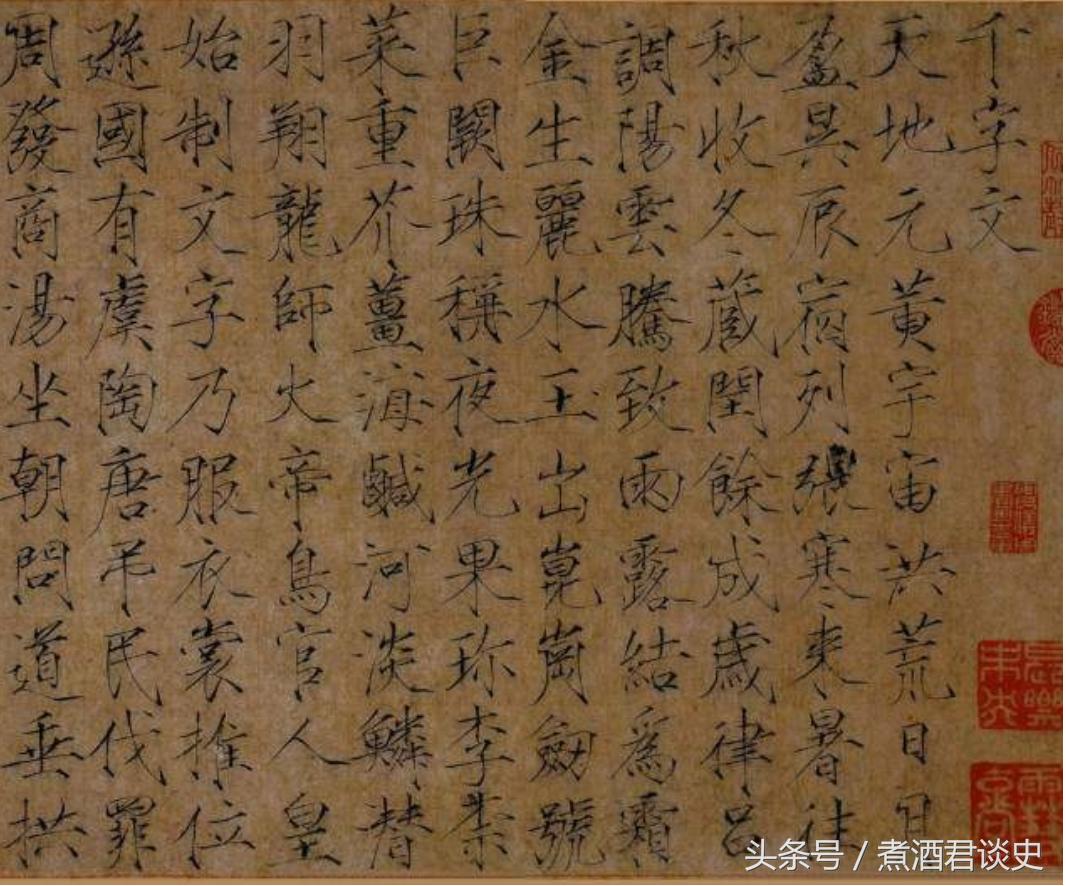 千字文
天地元黄宇宙洪荒日月
盈昃辰宿列張寒来暑往
秋收冬蔵閏餘成歲律呂
調陽雲騰致雨露結爲霜
金生麗水玉出崑崗劒號
巨闕珠稱夜光果珍李柰
菜重芥薑海鹹河淡鱗潛
羽翔龍師火帝鳥官人皇
始制文字乃服衣裳推位
遜國有虞陶唐弔民伐罪
周發商湯坐朝問道垂拱
頭条号 / 煮酒君谈史